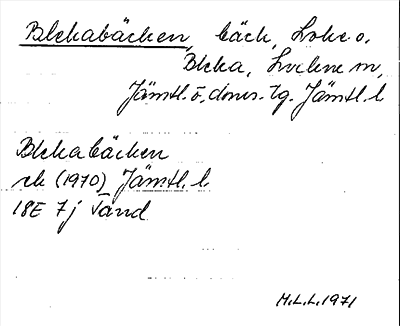 Blekabäcken, bäck, Loke o.
Bleka, Lockne sn,
Jämtl. ö. doms. tg. Jämtl. l.
Blekabäcken
ek (1970) Jämtl. l.
18E 7j Tand
M.L.L. 1971